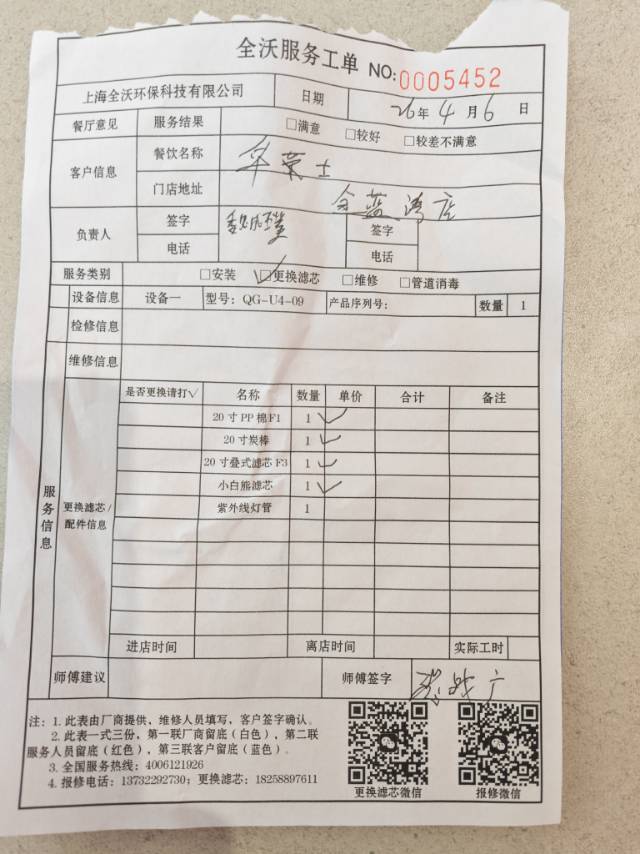 全沃服务工单 NO:0005452
上海全沃环保科技有限公司 日期 26年4月6日
餐厅意见 服务结果 □满意 □较好 □较差不满意
客户信息 餐饮名称 华莱士
门店地址 金蓝湾店
负责人 签字 签字
电话 电话
服务类别 □安装 ☑更换滤芯 □维修 □管道消毒
设备信息 设备一 型号: QG-U4-09 产品序列号: 数量 1
检修信息
维修信息
服务信息
更换滤芯/配件信息
是否更换请打√ 名称 数量 单价 合计 备注
20寸PP棉F1 1 ✓
20寸炭棒 1 ✓
20寸叠式滤芯F3 1 ✓
小白熊滤芯 1 ✓
紫外线灯管 1
进店时间 离店时间 实际工时
师傅建议 师傅签字
注: 1.此表由厂商提供，维修人员填写，客户签字确认。
2.此表一式三份，第一联厂商留底(白色)，第二联
服务人员留底(红色)，第三联客户留底(蓝色)。
3.全国服务热线: 4006121926
4.报修电话: 13732292730; 更换滤芯: 18258897611
更换滤芯微信 报修微信